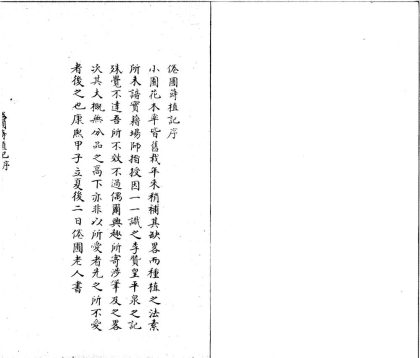 倦圃蒔植記序
小圃花木率皆舊栽年来稍補其缺畧而種植之法素
所未諳實藉場師指授因一一識之李贊皇平泉之記
殊覺不達吾所不效不過偶爾興趣所寄涉筆及之畧
次其大概無分品之高下亦非以所愛者先之所不愛
者後之也康熙甲子立夏後二日倦圃老人書
倦圃蒔植記序